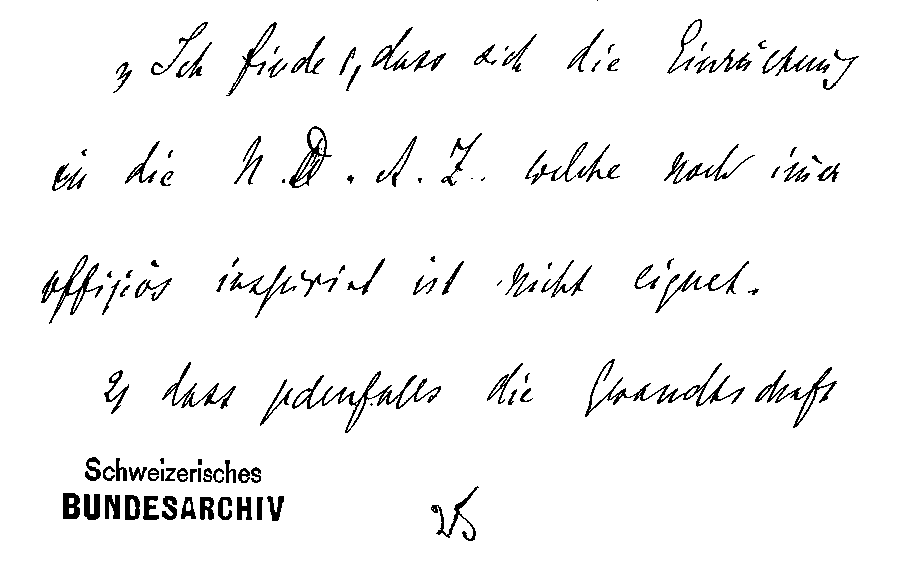 1) Ich finde 1, dass sich die Einrückung
in die N.D.A.Z. welche noch imer
offiziös inspirirt ist nicht eignet.
2) dass jedenfalls die Gesandtschaft
Schweizerisches
BUNDESARCHIV